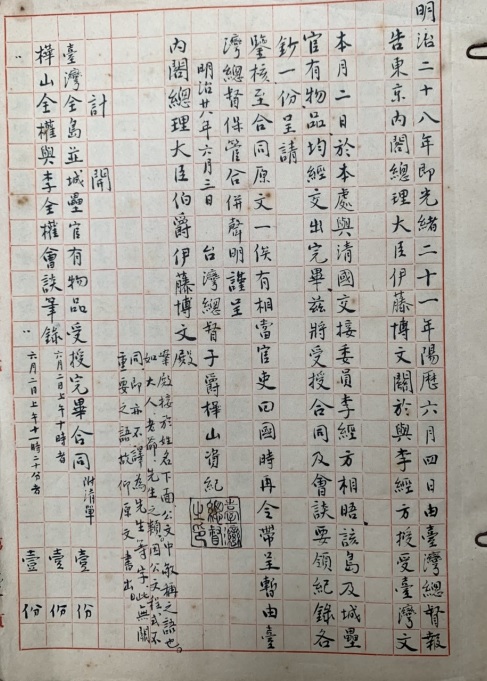 明治二十八年即光緒二十一年陽歷六月四日由臺灣總督報
告東京內閣總理大臣伊藤博文關於與李經方授受臺灣文
本月二日於本處與清國交接委員李經方相晤該島及城壘
官有物品均經交出完畢茲將受授合同及會談要領紀錄各
鈔一份呈請
鑒核至合同原文一俟有相當官吏回國時再令帶呈暫由臺
灣總督保管合併聲明謹呈
明治廿八年六月三日 台灣總督子爵樺山資紀
臺灣總督之印
內閣總理大臣伯爵伊藤博文殿
案殿接於姓名下面公文中敬稱之語也。
如大人老爺先生之類因公文程式不
同即亦不譯為先生等字此無關
重要之語故仰原文書出。
計開
臺灣全島並城壘官有物品受授完畢合同 附清單 壹份
樺山全權與李全權會談筆錄 六月二日上午十時者 壹份
〃 〃 六月二日上午十一時二十分者 壹份